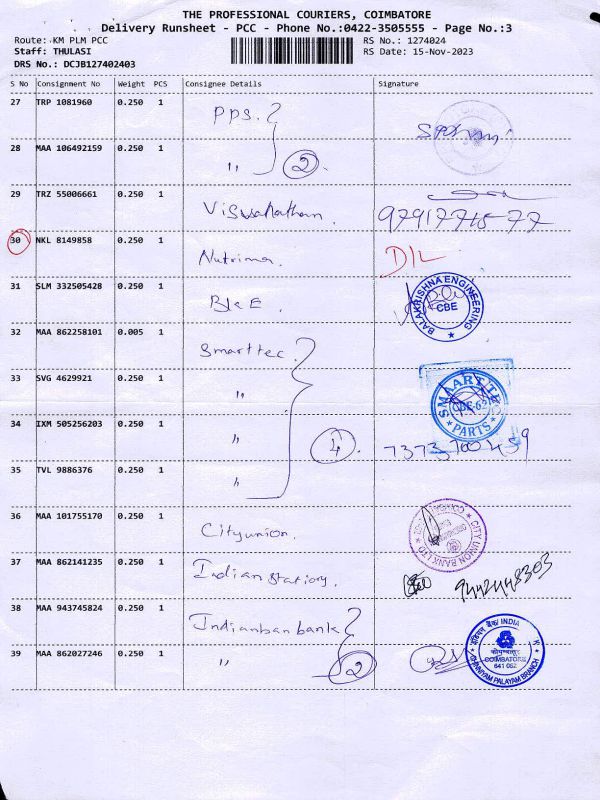 THE PROFESSIONAL COURIERS, COIMBATORE
Delivery Runsheet - PCC - Phone No.:0422-3505555 - Page No.:3
Route: KM PLM PCC RS No.: 1274024
Staff: THULASI RS Date: 15-Nov-2023
DRS No.: DCJB127402403
S No Consignment No Weight PCS Consignee Details Signature
27 TRP 1081960 0.250 1 PPS.
28 MAA 106492159 0.250 1 " 2
29 TRZ 55006661 0.250 1 Viswanathan
30 NKL 8149858 0.250 1 Nutrima. D/L
31 SLM 332505428 0.250 1 B&E. BALAKRISHNA ENGINEERING CBE
32 MAA 862258101 0.005 1 Smarttec.
33 SVG 4629921 0.250 1 " SMAART TEC PARTS
34 IXM 505256203 0.250 1 " 4 7373700459
35 TVL 9886376 0.250 1 "
36 MAA 101755170 0.250 1 Cityunion. CITY UNION BANK LTD
37 MAA 862141235 0.250 1 Indian Stationy.
38 MAA 943745824 0.250 1 Indianbanbank
39 MAA 862027246 0.250 1 " 2 INDIA COIMBATORE 641 062 CHINNIYAM PALAYAM BRANCH